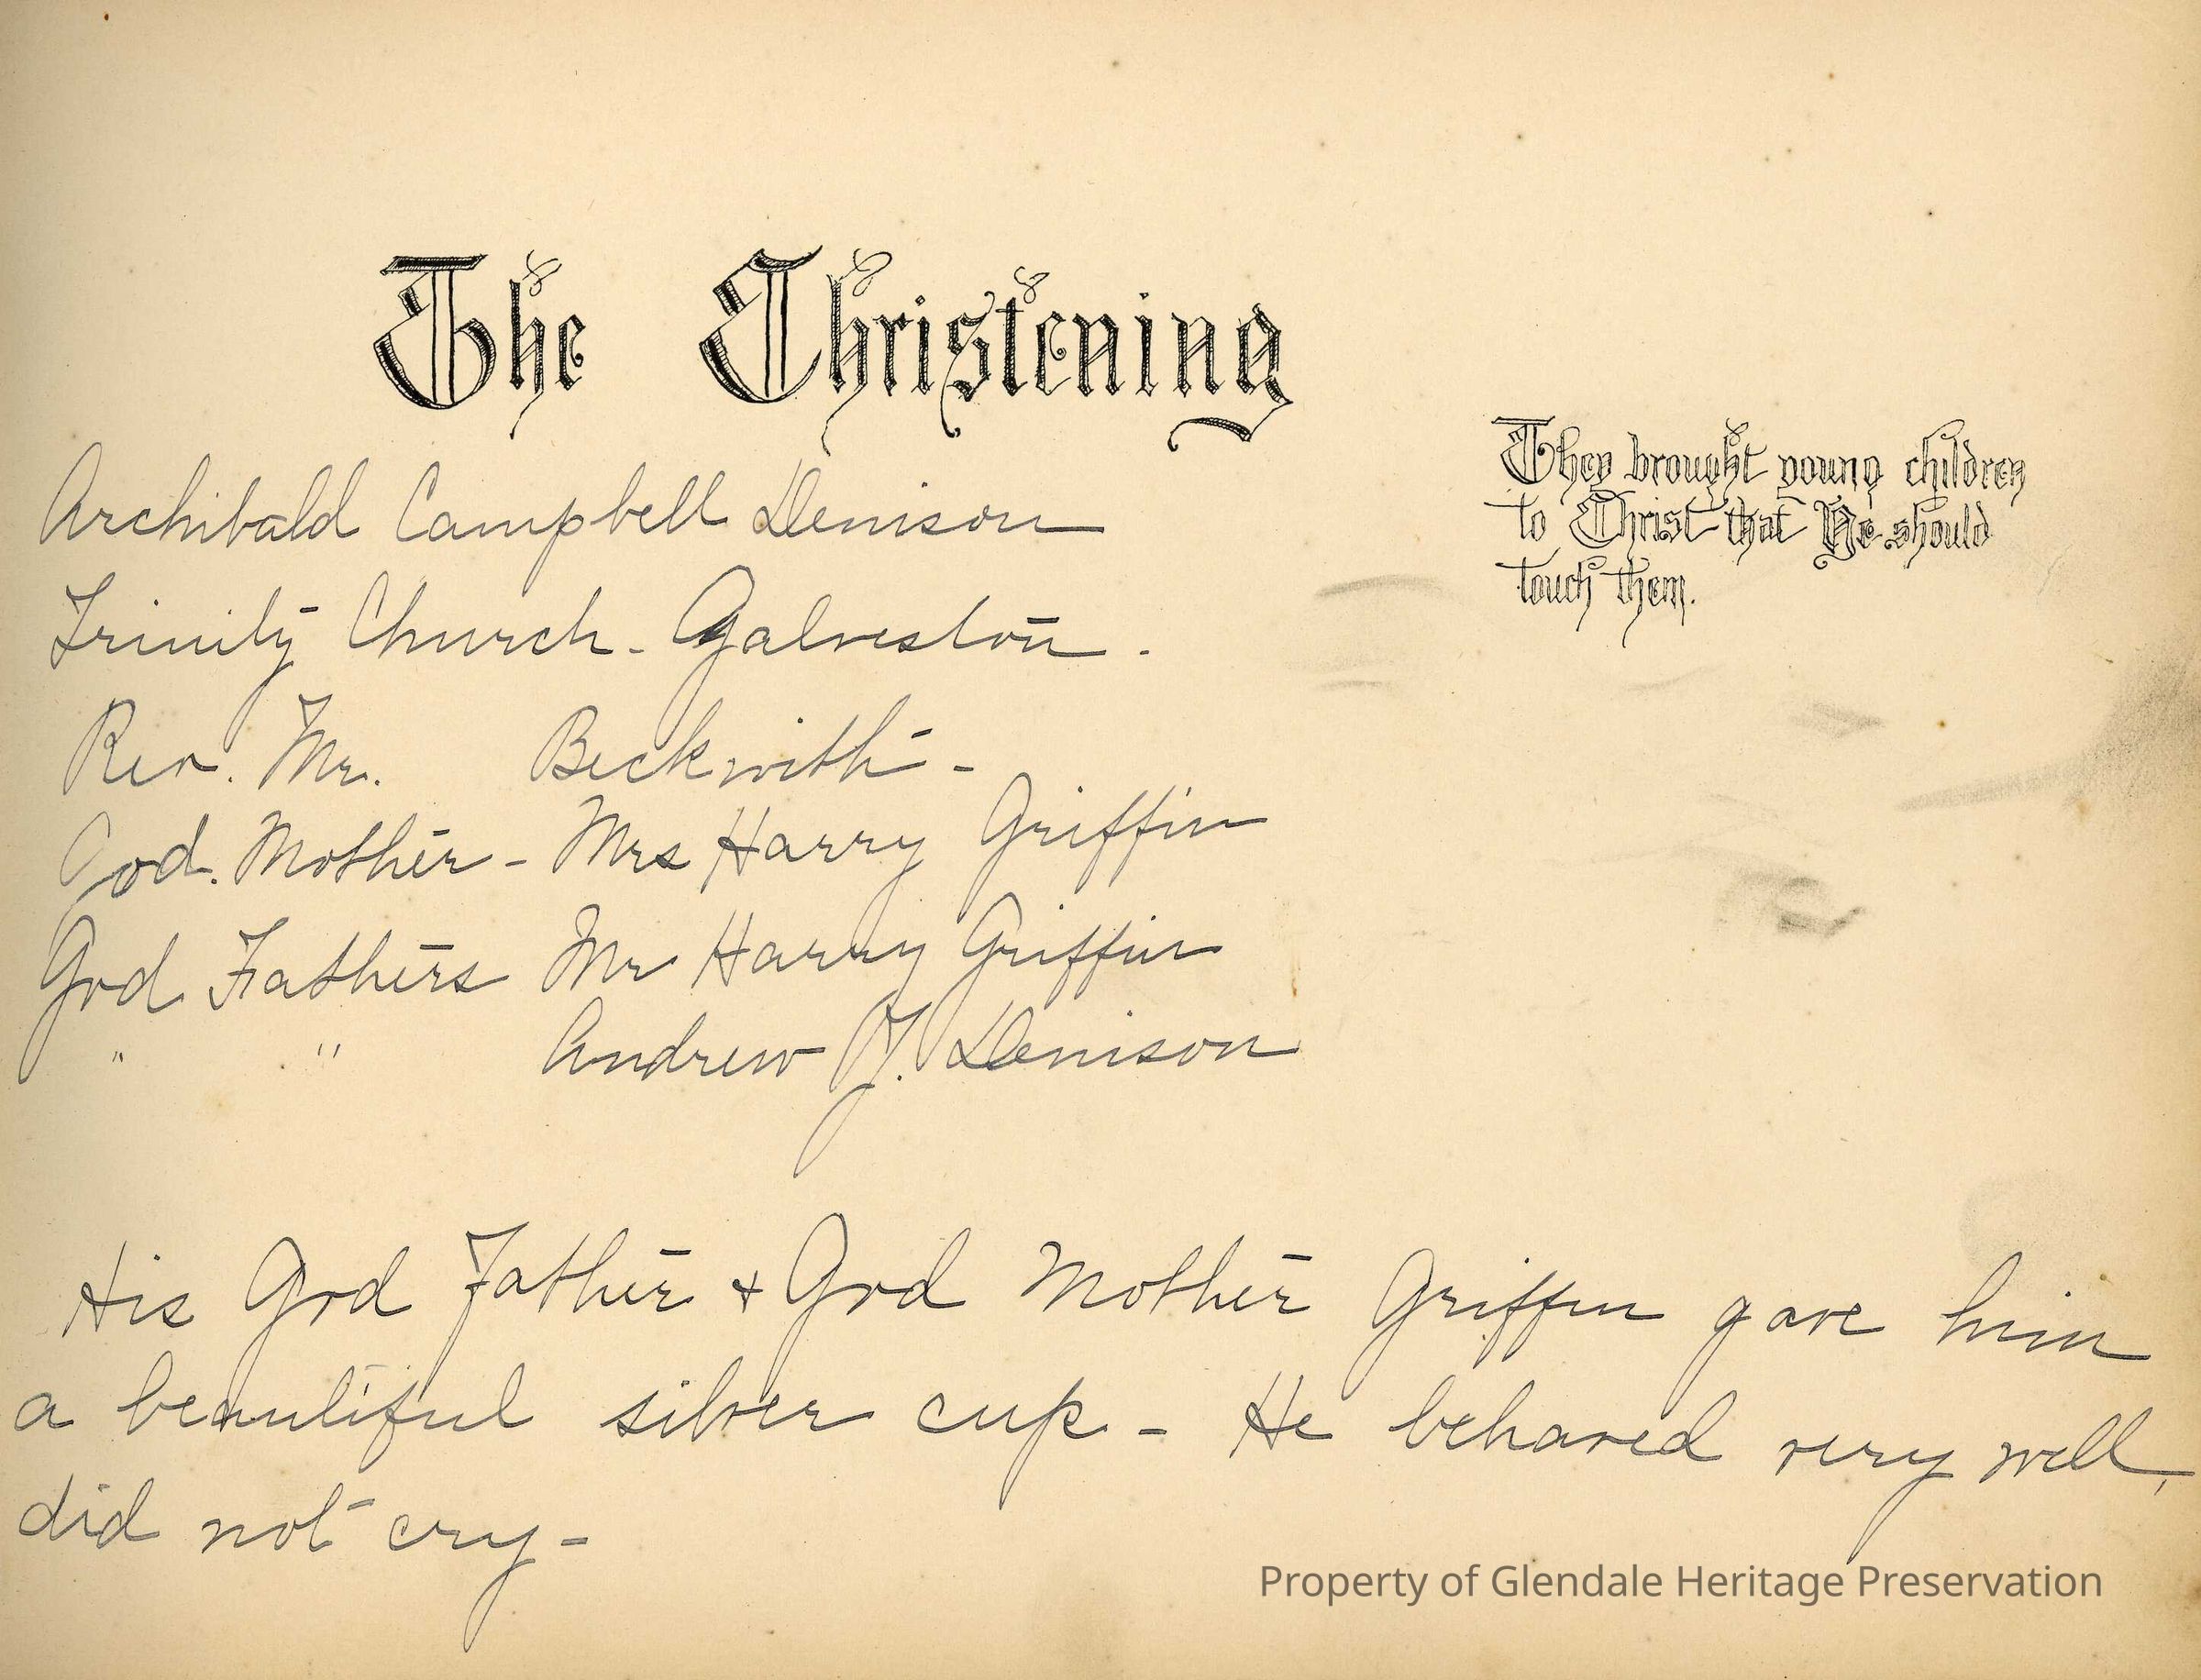 The Christening
They brought young children
to Christ that He should
touch them.
Archibald Campbell Denison
Trinity Church - Galveston.
Rev. Mr. Beckwith -
God. Mother - Mrs Harry Griffin
God Fathers Mr Harry Griffin
" " Andrew Denison
His God Father & God Mother Griffin gave him
a beautiful silver cup - He behaved very well,
did not cry -
Property of Glendale Heritage Preservation